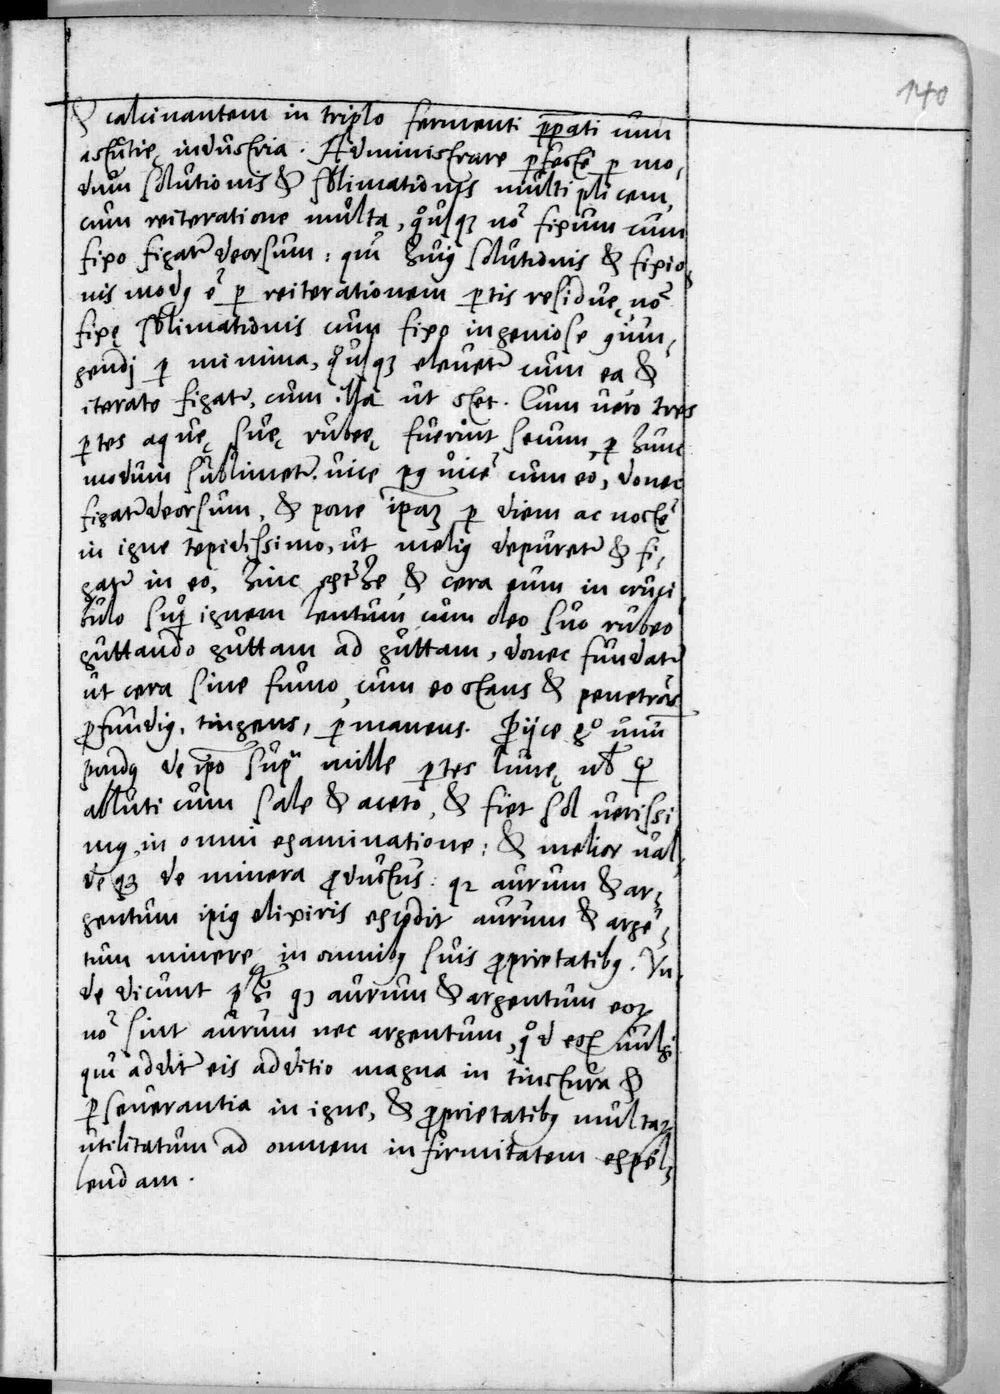 140
& calcinantem in triplo fermenti ppati cum
astutię industria. Administrare pfectē p mo,
dum solutionis & sblimationis multiplicem,
cum reiteratione multa, qͦusqꝫ nō fixum cum
fixo figatͬ deorsum: qui huiꝰ solutionis & fixio,
nis modꝰ ē p reiterationem ptis residuę nō
fixę sblimationis cum fixo ingeniose ꝯiun,
gendj p minima, qͦusqꝫ eleuetͬ cum ea &
iterato figatͬ, cum illa ut stet. Cum uero tres
ptes aquę suę rubeę fuerint secum, p hunc
modum sublimetͬ uice pꝰ uicē cum eo, donec
figatͬ deorsum, & pone ipaꝫ p diem ac noctē
in igne tepidissimo, ut meliꝰ depuretͬ & fi,
gatͬ in eo, hinc & cera eum in cruci
bulo supͥ ignem lentum cum oleo suo rubeo
guttando guttam ad guttam, donec fundatͬ
ut cera sine fumo, cum eo stans & penetrās
ꝓfundiꝰ, tingens, pmanens. Proijce gͦ unū
pondꝰ de ipo supͣ mille ptes lunę ul
abluti cum sale & aceto, & fiet sol uerissi
mꝰ, in omni examinatione: & melior ual,
de qꝫ de minera ꝓductus: qꝛ aurum & ar,
gentum ipiꝰ elixiris excedit aurum & argē,
tum minerę in omnibꝰ suis ꝓprietatibꝰ. Vn,
de dicunt phi qꝫ aurum & argentum eoꝝ
nō sint aurum nec argentum, qͦd est uulgi
qui additͬ eis additio magna in tinctura &
pseuerantia in igne, & ꝓprietatibꝰ multaꝝ
utilitatum ad omnem infirmitatem expel,
lendam.